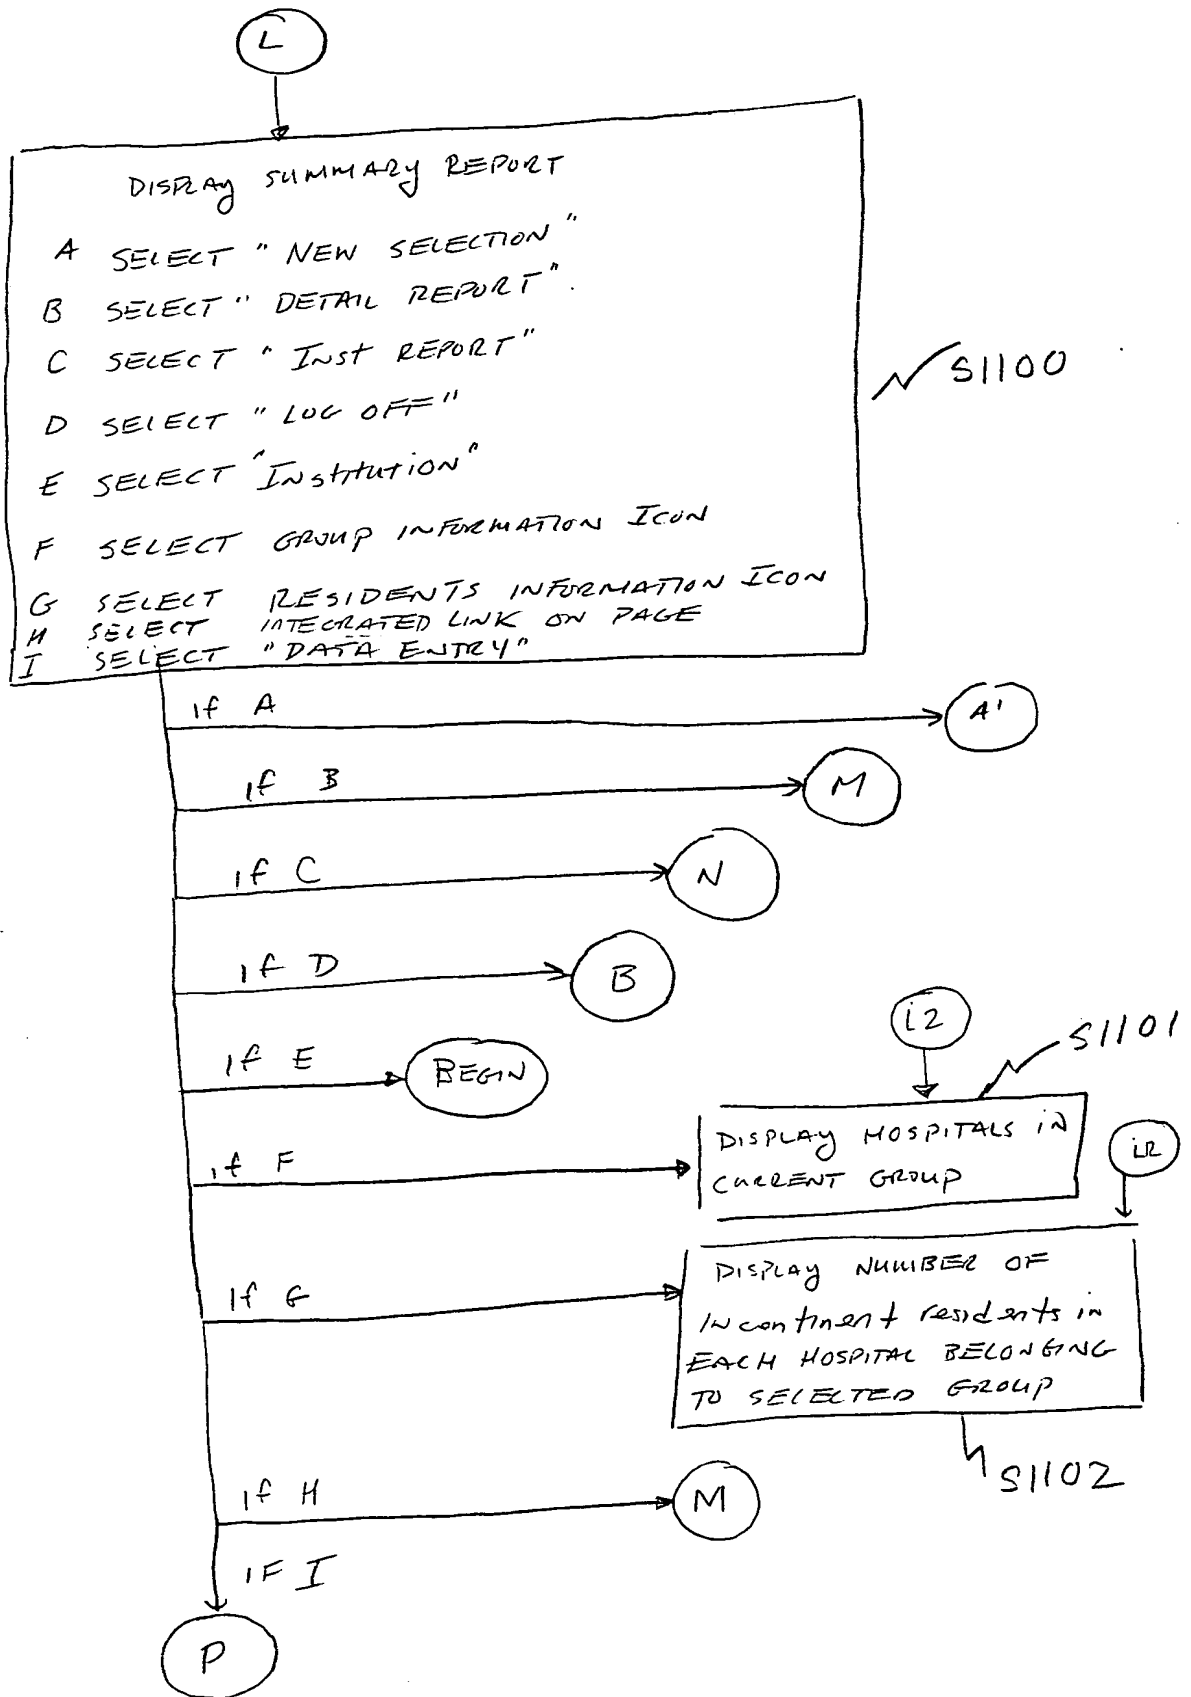 L
DISPLAY SUMMARY REPORT
A SELECT "NEW SELECTION"
B SELECT "DETAIL REPORT".
C SELECT "INST REPORT"
D SELECT "LOG OFF"
E SELECT "INSTITUTION"
F SELECT GROUP INFORMATION ICON
G SELECT RESIDENTS INFORMATION ICON
H SELECT INTEGRATED LINK ON PAGE
I SELECT "DATA ENTRY"
S1100
if A
A'
if B
M
if C
N
if D
B
if E
BEGIN
i2
S1101
if F
DISPLAY HOSPITALS IN
CURRENT GROUP
if G
DISPLAY NUMBER OF
Incontinent residents in
EACH HOSPITAL BELONGING
TO SELECTED GROUP
S1102
if H
M
IF I
P